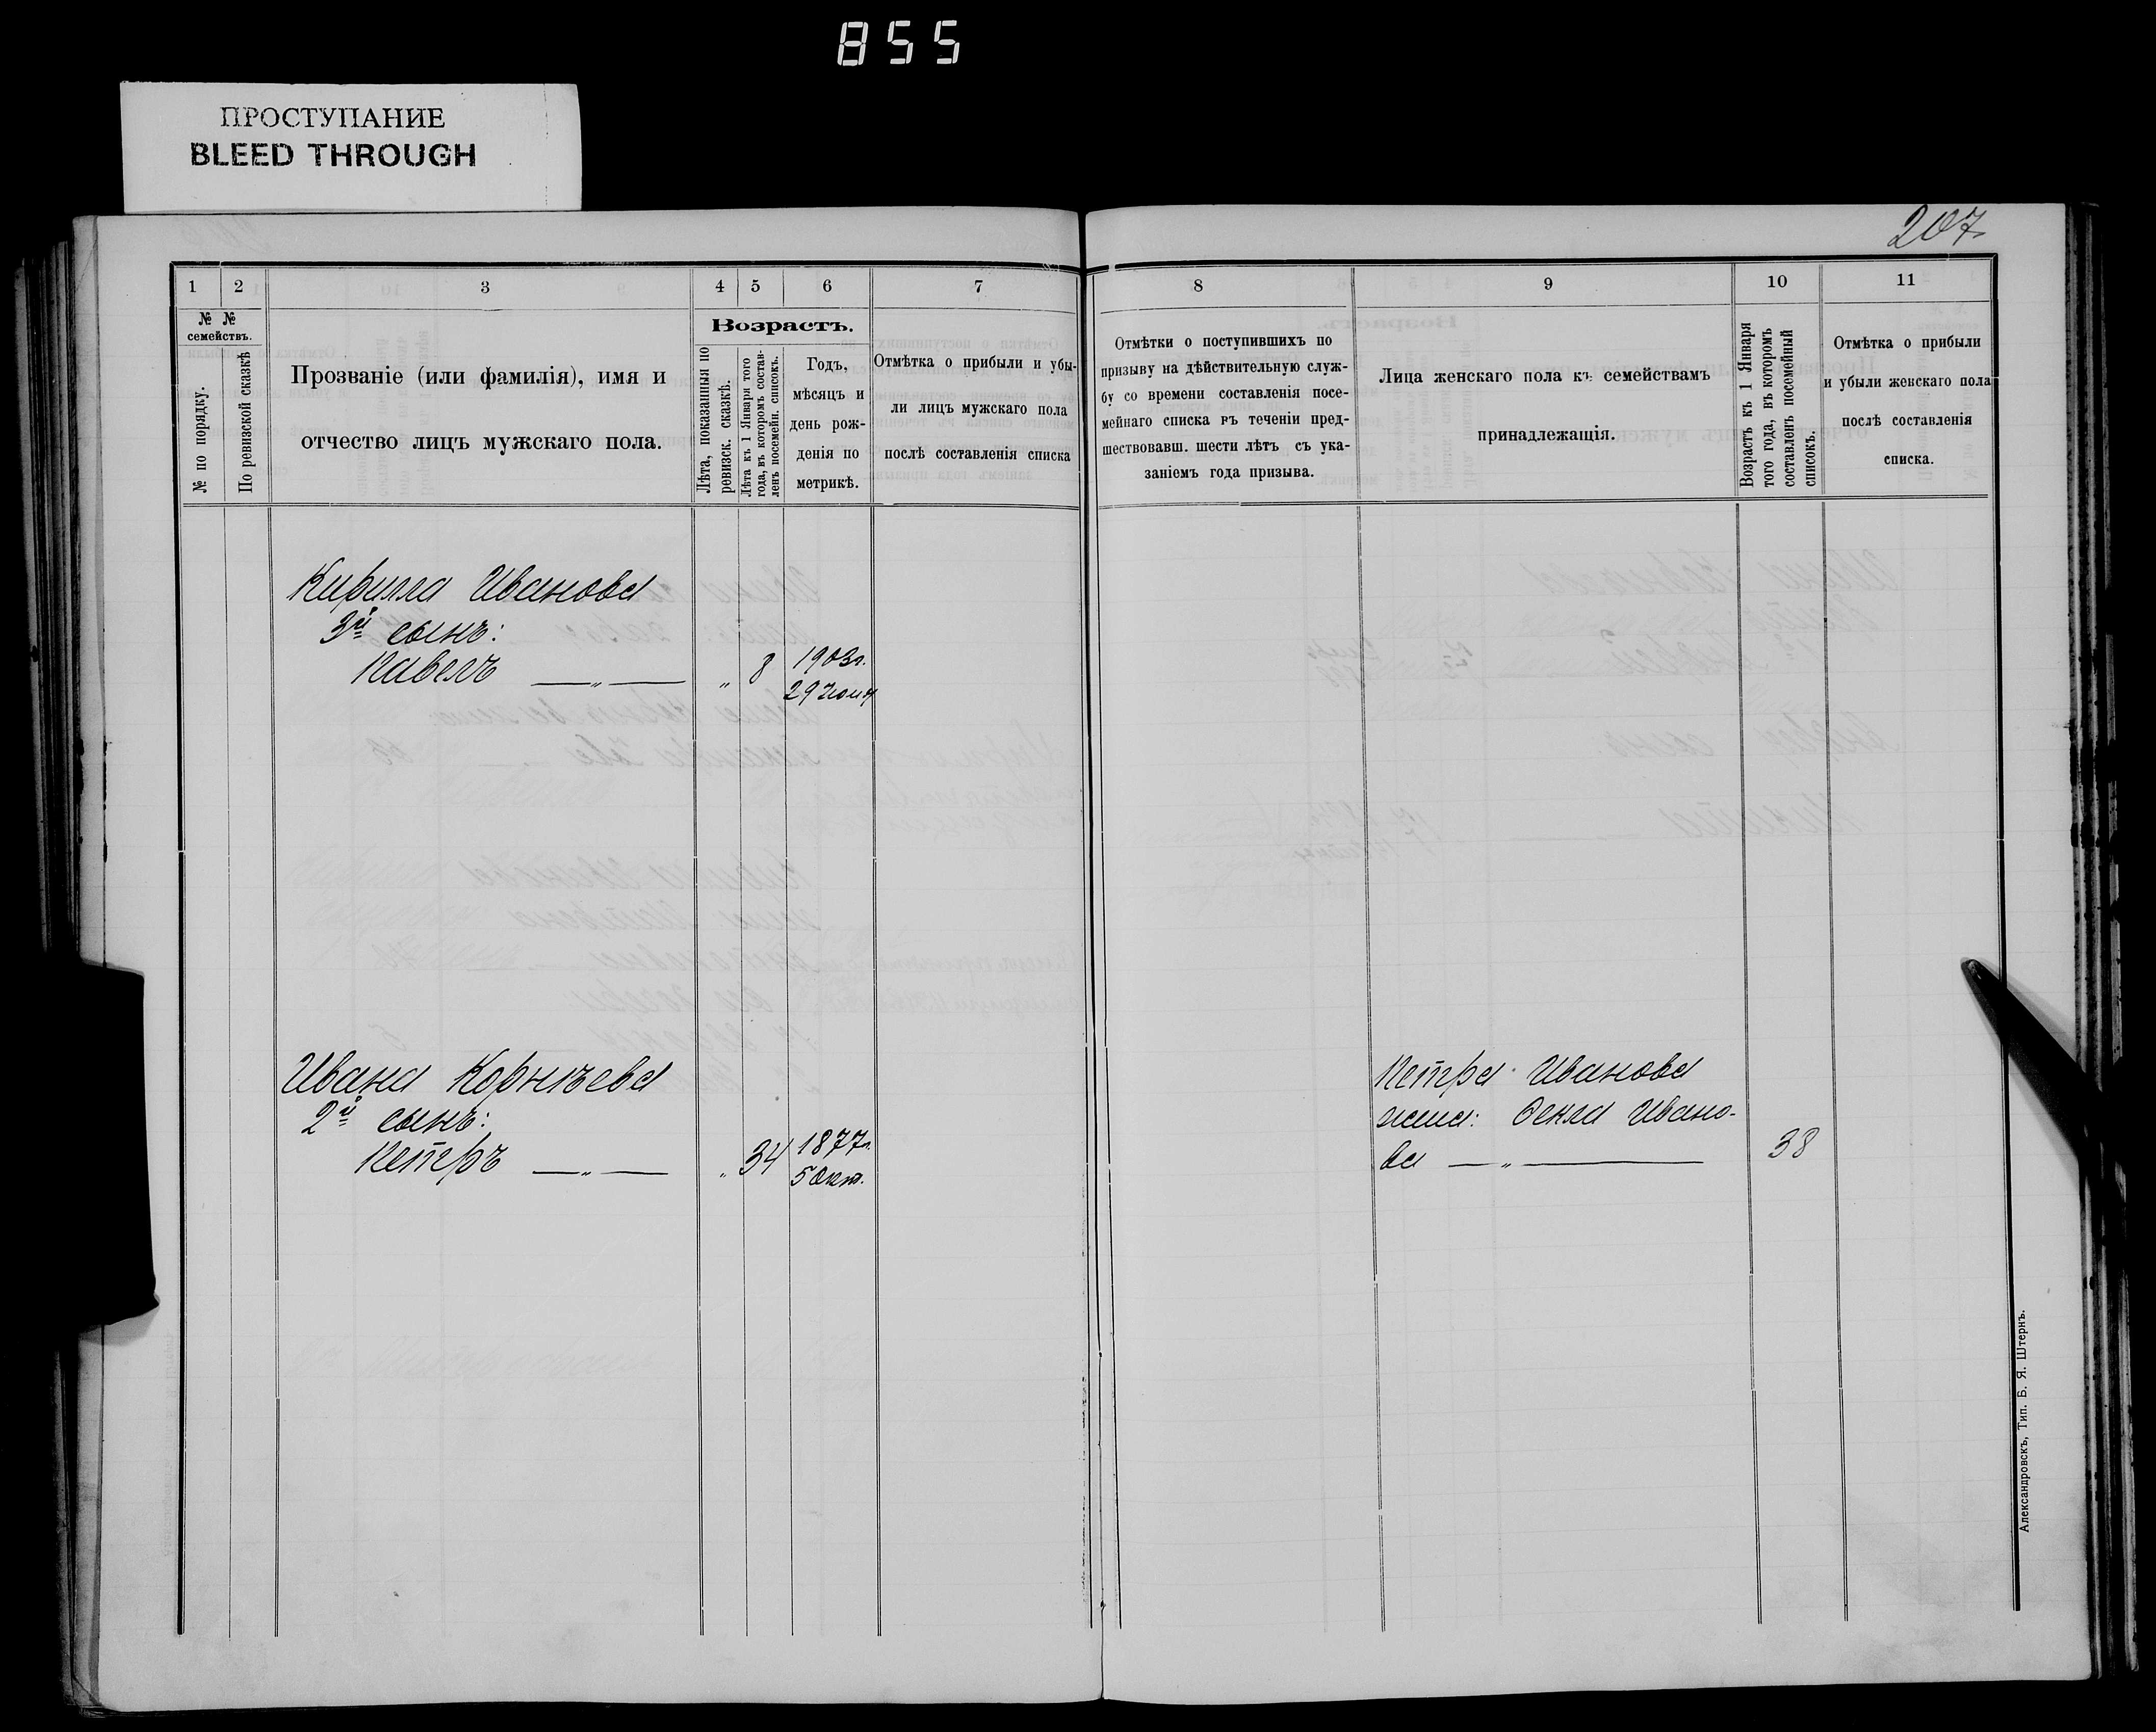 855
ПРОСТУПАНИЕ
BLEED THROUGH
207
1
2
3
4
5
6
7
№ №
семействъ.
№ по порядку.
По ревизской сказкѣ
Прозваніе (или фамилія), имя и
отчество лицъ мужскаго пола.
Возрастъ.
Лѣта, показанныя по
ревизск. сказкѣ.
Лѣта къ 1 Января того
года, въ которомъ состав-
ленъ посемейн. списокъ.
Годъ,
мѣсяцъ и
день рож-
денія по
метрикѣ.
Отмѣтка о прибыли и убы-
ли лицъ мужскаго пола
послѣ составленія списка
8
9
10
11
Отмѣтки о поступившихъ по
призыву на дѣйствительную служ-
бу со времени составленія посе-
мейнаго списка въ теченіи пред-
шествовавш. шести лѣтъ съ ука-
заніемъ года призыва.
Лица женскаго пола къ семействамъ
принадлежащія.
Возрастъ къ 1 Января
того года, въ которомъ
составленъ посемейный
списокъ.
Отмѣтка о прибыли
и убыли женскаго пола
послѣ составленія
списка.
Кирилла Иванова
3й сынъ:
Павелъ —„— „ 8 1903г.
29 Іюня
Ивана Корнѣева
2й сынъ:
Петръ —„— „ 34 1877г.
5 Окт.
Петра Иванова
жена: Ѳекла Ивано-
ва —„— 38
Александровскъ, Тип. Б. Я. Штернъ.